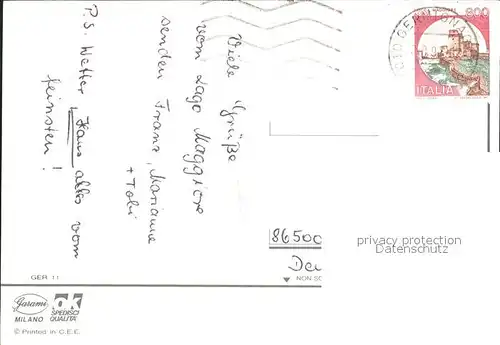 Viele Grüße
vom Lago Maggiore
senden Franz, Marianne
+ Tobi
P.S. Wetter, Haus alles vom
feinsten!
800
ITALIA
86500
privacy protection
Datenschutz
NON SC
GER 11
Garami
MILANO
ok
SPEDISCI
QUALITA'
© Printed in C.E.E.